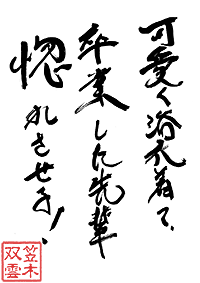 可愛く浴衣着て、
卒業した先輩
惚れさせる!
笠木
双雲